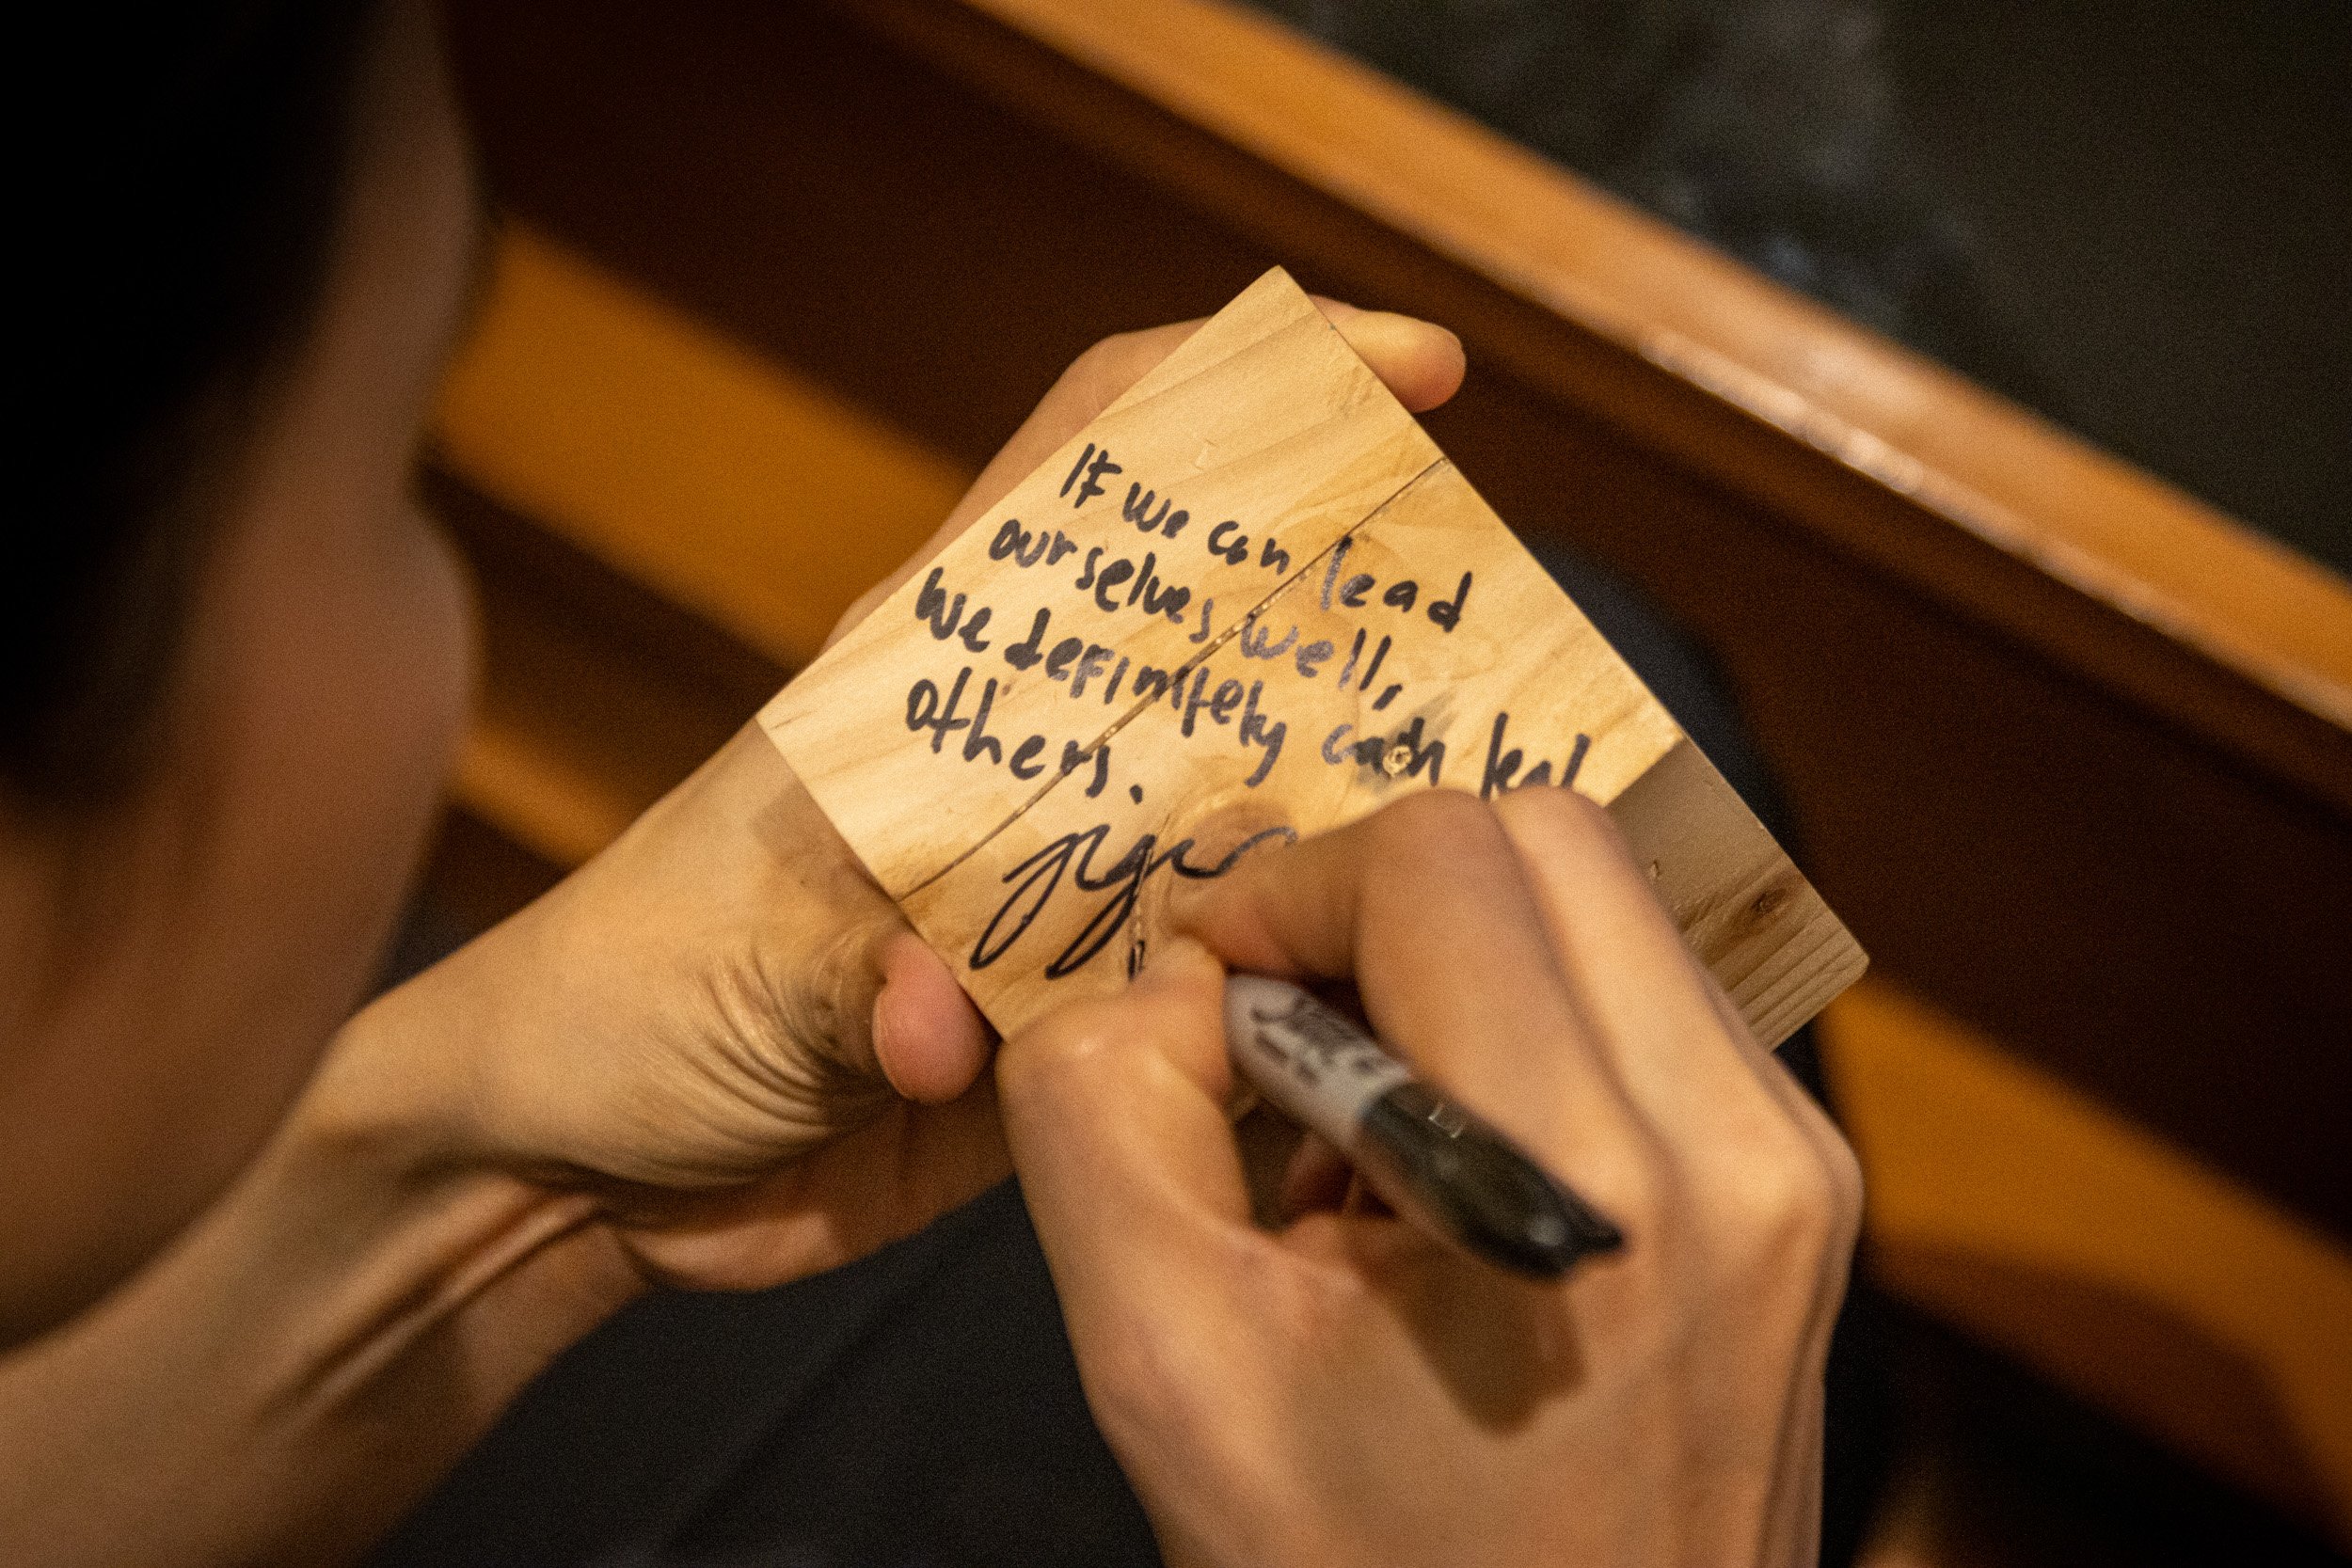 If we can lead
ourselves well,
we definitely can lead
others.